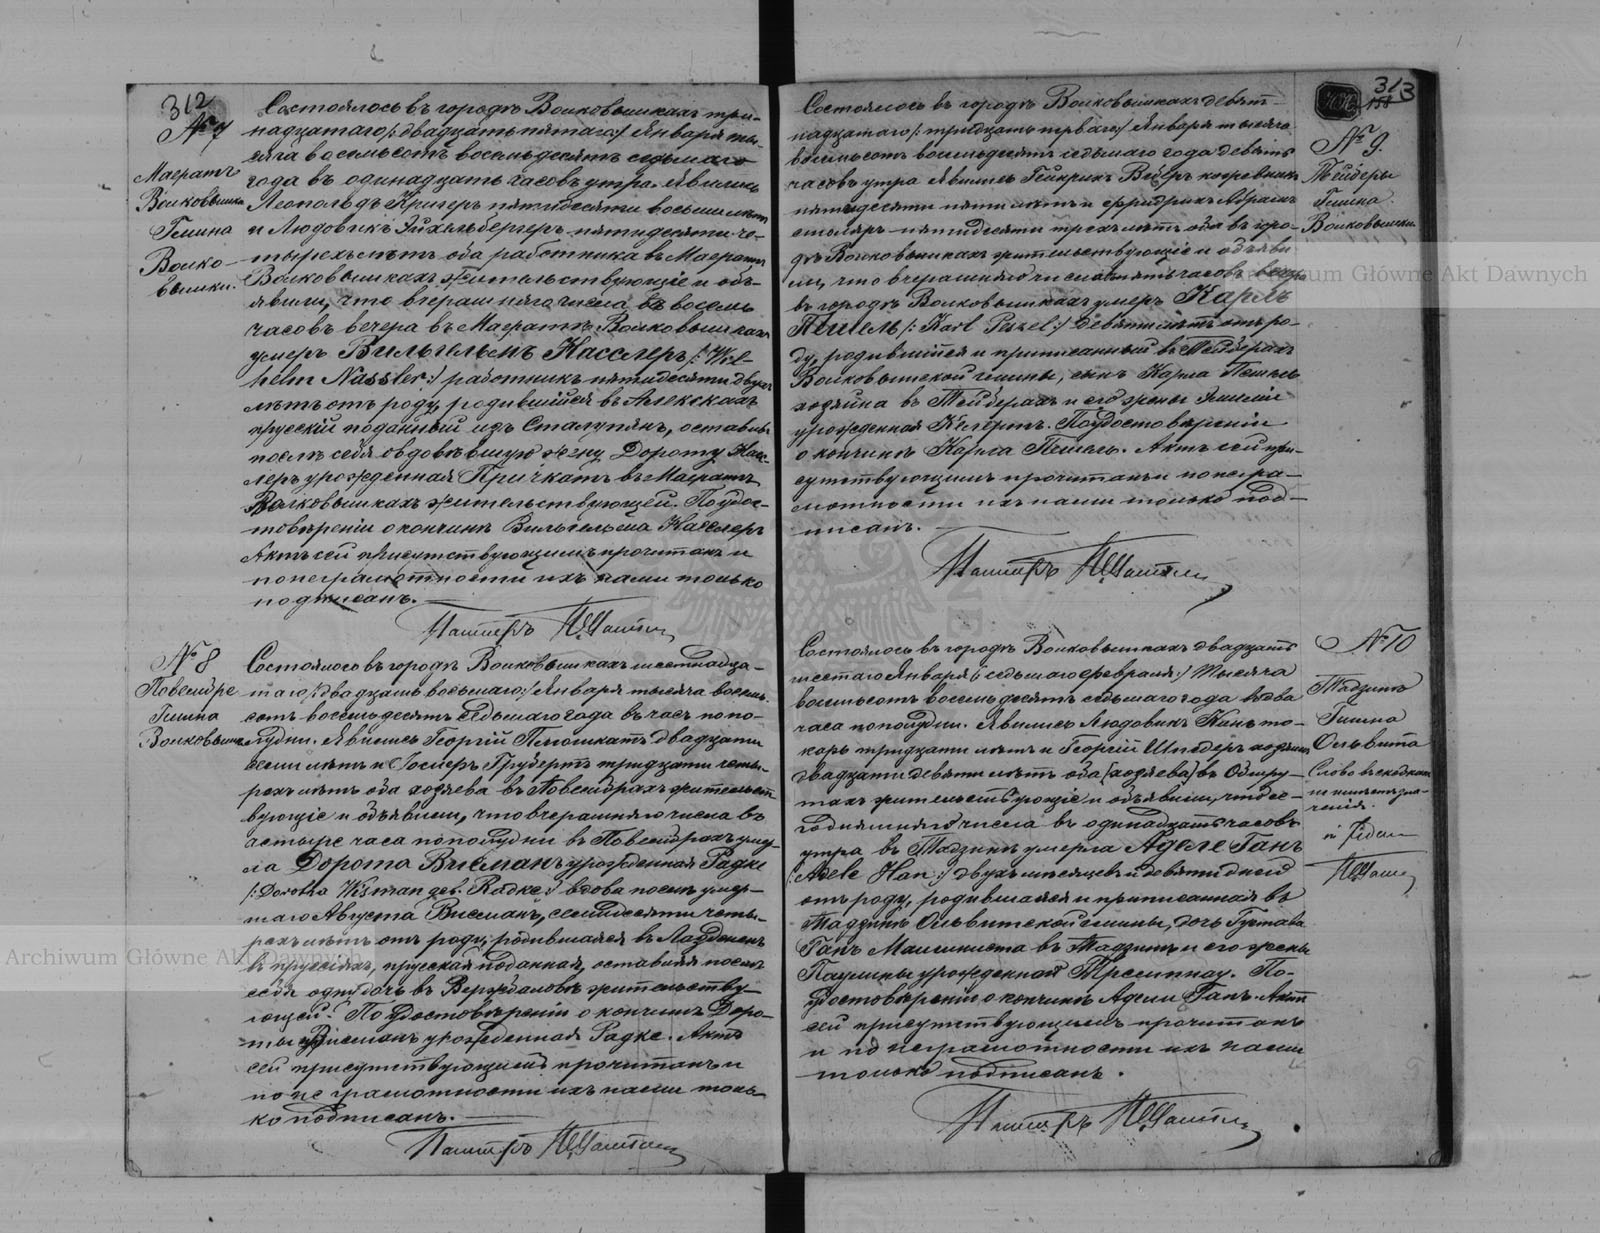 312
№ 7
Маератъ
Волковышки
Гмина
Волко-
вышки.
Состоялось въ городѣ Волковышкахъ три-
надцатаго /: двадцать пятаго :/ Января ты-
сяча восемьсотъ восемьдесятъ седьмаго
года въ одинадцать часовъ утра. Явились
Леопольдъ Кригеръ пятидесяти восьми лѣтъ
и Людовикъ Эйхельбергеръ пятидесяти че-
тырехъ лѣтъ оба работника въ Маератѣ
Волковышкахъ жительствующіе и объ-
явили, что вчерашняго числа въ восемь
часовъ вечера въ Маератѣ Волковышкахъ
умеръ Вильгельмъ Насслеръ /: Wil-
helm Nassler :/ работникъ пятидесяти двухъ
лѣтъ отъ роду, родившійся въ Алекскахъ
прусскій поданный изъ Сталупянъ, оставивъ
послѣ себя овдовѣвшую жену Дороту Нас-
леръ урожденная Причкатъ въ Маератѣ
Волковышкахъ жительствующей. По удос-
товѣреніи о кончинѣ Вильгельма Насслеръ
Актъ сей присутствующимъ прочитанъ и
по неграмотности ихъ нами только
подписанъ.
Пасторъ
№ 8
Повембре
Гмина
Волковышки
Состоялось въ городѣ Волковышкахъ шестнадца-
таго /: двадцать восьмаго :/ Января тысяча восемь-
сотъ восемьдесятъ седьмаго года въ часъ попо-
лудни. Явились Георгій Плюшкатъ двадцати
семи лѣтъ и Грубертъ тридцати четы-
рехъ лѣтъ оба хозяева въ Повембрахъ жительст-
вующіе и объявили, что вчерашняго числа въ
четыре часа пополудни въ Повембрахъ умер-
ла Дорота Висманъ урожденная Радке
/: Dorothea Wisman geb. Radke :/ вдова послѣ умер-
шаго Августа Висманъ, семидесяти четы-
рехъ лѣтъ отъ роду, родившаяся въ Лазденень
въ пруссіяхъ, прусская поданная, оставивъ послѣ
себя одну дочь въ Вержболовѣ жительству-
ющей. По удостовѣреніи о кончинѣ Доро-
ты Висманъ урожденная Радке. Актъ
сей присутствующимъ прочитанъ и
по неграмотности ихъ нами толь-
ко подписанъ.
Пасторъ
313
№ 9.
Тейберы
Гмина
Волковышки
Состоялось въ городѣ Волковышкахъ девят-
надцатаго /: тридцать перваго :/ Января тысяча
восемьсотъ восемьдесятъ седьмаго года девять
часовъ утра явились Гейнрихъ Вейеръ
пятидесяти пяти лѣтъ и Фридрихъ Абрамъ
столяръ пятидесяти трехъ лѣтъ оба въ горо-
дѣ Волковышкахъ жительствующіе и объяви-
ли, что вчерашняго числа въ пять часовъ вечера
въ городѣ Волковышкахъ умеръ Карлъ
Пецель /: Karl Pezel :/ девяти лѣтъ отъ ро-
ду, родившійся и приписанный въ Тейберахъ
Волковышской гмины, сынъ Карла Пецель
хозяина въ Тейберахъ и его жены Эмиліи
урожденной Кегертъ. По удостовѣреніи
о кончинѣ Карла Пецель. Актъ сей при-
сутствующимъ прочитанъ и по негра-
мотности ихъ нами только под-
писанъ.
Пасторъ
№ 10
Тадзинъ
Гмина
Ольвита
Слово въ скобкахъ
не имѣетъ зна-
ченія.
Состоялось въ городѣ Волковышкахъ двадцать
шестаго Января /: седьмаго февраля :/ Тысяча
восемьсотъ восемьдесятъ седьмаго года въ два
часа пополудни. Явились Людовикъ Канъ то-
каръ тридцати лѣтъ и Георгій Шнедеръ хозяинъ
двадцати девяти лѣтъ оба [хозяева] въ Обшру-
тахъ жительствующіе и объявили, что се-
годняшняго числа въ одинадцать часовъ
утра въ Тадзинѣ умерла Аделе Ганъ
/: Adele Han :/ двухъ мѣсяцевъ и девяти дней
отъ роду, родившаяся и приписанная въ
Тадзинѣ Ольвитской гмины, дочь Густава
Ганъ Машиниста въ Тадзинѣ и его жены
Паулины урожденной Тресиннау. По-
удостовѣреніи о кончинѣ Адели Ганъ. Актъ
сей присутствующимъ прочитанъ
и по неграмотности ихъ нами
только подписанъ.
Пасторъ
Archiwum Główne Akt Dawnych
Archiwum Główne Akt Dawnych